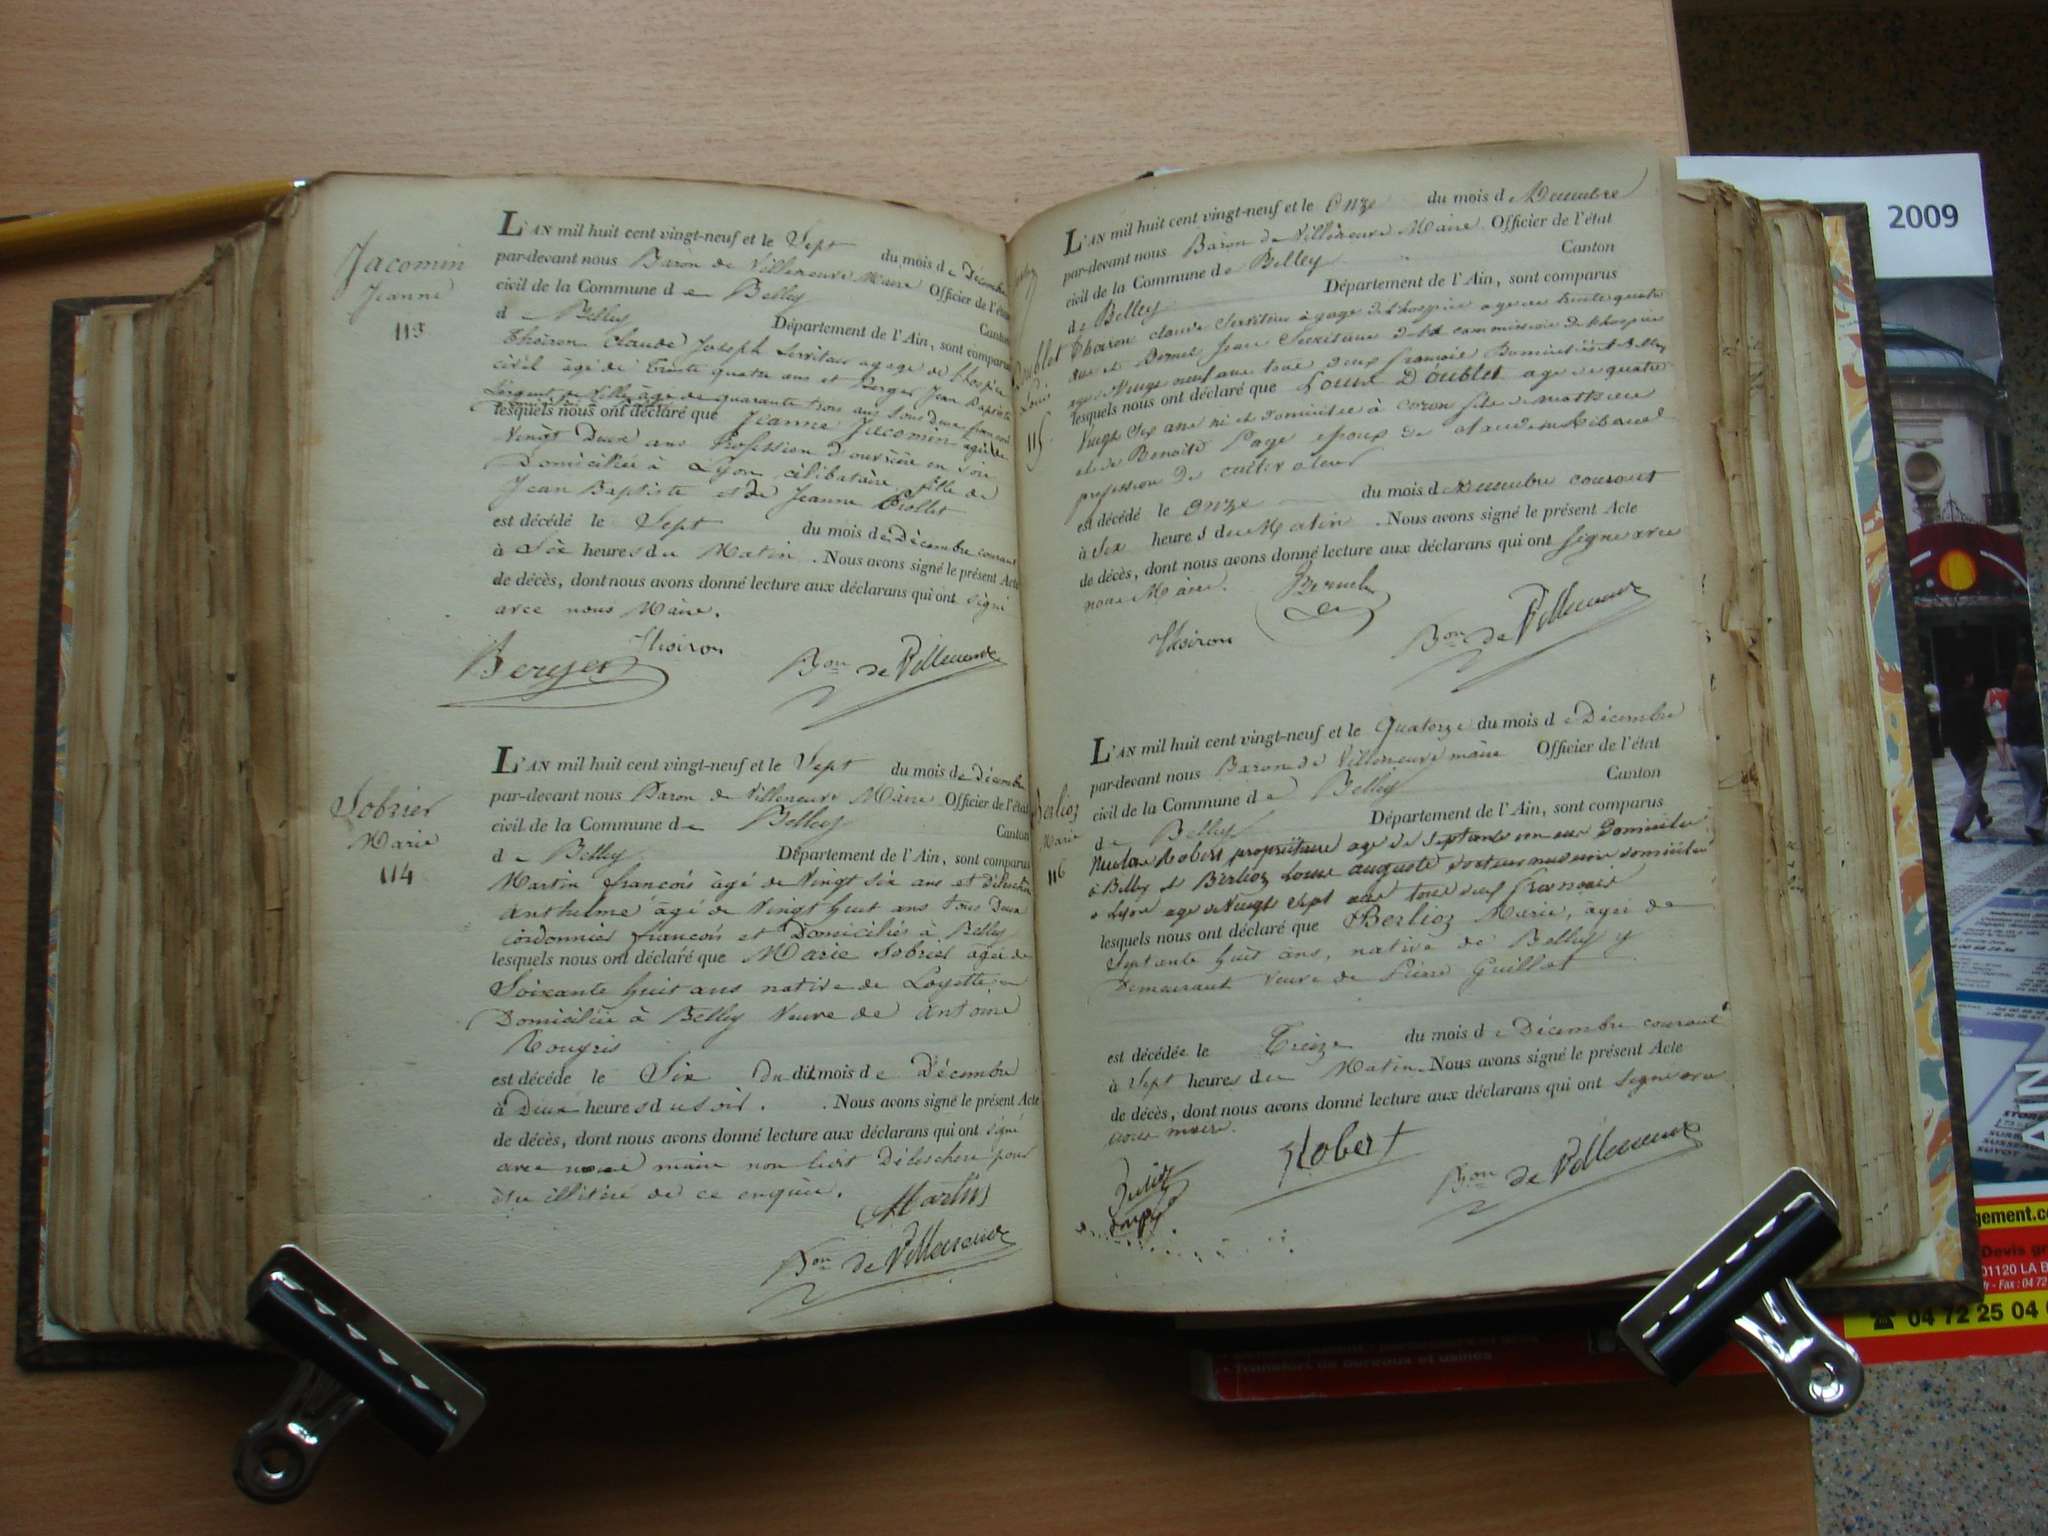 Jacomin
Jeanne
113
L'AN mil huit cent vingt-neuf et le Sept du mois de Décembre
par-devant nous Baron de Villeneuve Maire Officier de l'état
civil de la Commune de Belley Canton
de Belley Département de l'Ain, sont comparus
Thoiron Claude Joseph Serviteur a gage de l'hospice
civil âgé de Trente quatre ans et Berger Jean Baptiste
Sergent de Ville âgé de quarante trois ans tous deux françois
lesquels nous ont déclaré que Jeanne Jacomin agée de
Vingt Deux ans Profession d'ouvrière en soie
Domiciliée à Lyon célibataire fille de
Jean Baptiste et de Jeanne Trollet
est décédé le Sept du mois de Décembre courant
à Six heures du Matin. Nous avons signé le présent Acte
de décès, dont nous avons donné lecture aux déclarans qui ont signé
avec nous Maire.
Thoiron
Berger Bon de Villeneuve
Sobrier
Marie
114
L'AN mil huit cent vingt-neuf et le Sept du mois de Décembre
par-devant nous Baron de Villeneuve Maire Officier de l'état
civil de la Commune de Belley Canton
de Belley Département de l'Ain, sont comparus
Martin françois âgé de Vingt six ans et
Anthelme âgé de Vingt huit ans tous Deux
cordonnier françois et Domiciliés à Belley
lesquels nous ont déclaré que Marie Sobrier agée de
Soixante huit ans native de Loyette
Domiciliée à Belley Veuve de Antoine
est décédé le Six du dit mois de Décembre
à Deux heures du soir. Nous avons signé le présent Acte
de décès, dont nous avons donné lecture aux déclarans qui ont signé
avec nous maire non ledit pour
être illitiré de ce enquis.
Martin
Bon de Villeneuve
Doublet
Louis
115
L'AN mil huit cent vingt-neuf et le Onze du mois de Décembre
par-devant nous Baron de Villeneuve Maire Officier de l'état
civil de la Commune de Belley Canton
de Belley Département de l'Ain, sont comparus
Thoiron claude Serviteur à gage de l'hospice age de trente quatre
ans et Jean Secrétaire de la commission de l'hospice
agé de Vingt neuf ans tous deux françois Domiciliés à Belley
lesquels nous ont déclaré que Louis Doublet age de quatre
Vingt Six ans né et domicilié à coron fils de
et de Benoite Page epoux de
profession de cultivateur
est décédé le onze du mois de Décembre courant
à Six heures du Matin. Nous avons signé le présent Acte
de décès, dont nous avons donné lecture aux déclarans qui ont signé avec
nous Maire.
Thoiron Bon de Villeneuve
Berlioz
Marie
116
L'AN mil huit cent vingt-neuf et le Quatorze du mois de Décembre
par-devant nous Baron de Villeneuve maire Officier de l'état
civil de la Commune de Belley Canton
de Belley Département de l'Ain, sont comparus
Robert propriétaire age de septante un ans Domicilié
à Belley et Berlioz Louis auguste docteur medecin domicilié
a Lyon age de Vingt sept ans tous deux francois
lesquels nous ont déclaré que Berlioz Marie, âgée de
Septante huit ans, native de Belley y
Demeurant Veuve de Pierre Guillot
est décédée le Treize du mois de Décembre courant
à Sept heures du Matin. Nous avons signé le présent Acte
de décès, dont nous avons donné lecture aux déclarans qui ont signé avec
nous maire.
Robert
Bon de Villeneuve
2009
AIN
gement.c
Devis gr
01120 LA B
04 72 25 04
Transfert de bureaux et usines